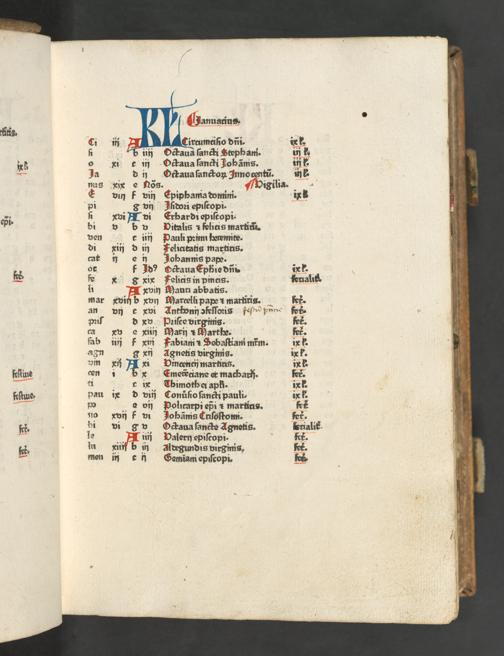 rtiris.
ix ł.
epi.
fcē.
festiue
festiue.
fcē.
fcē.
KL Januarius.
Ci iij A Circumcisio dñi. ix ł.
si b iiij Octaua sancti Stephani. iij ł.
o xi c iij Octaua sancti Johãnis. iij ł.
Ja d ij Octaua sanctorꝝ Innocentũ. iij ł.
nus xix e Nõs. Vigilia.
E viij f viij Epiphania domini. ix ł
pi g vij Isidori episcopi.
si xvi A vi Erhardi episcopi.
bi v b v Vitalis ⁊ felicis martirũ.
ven c iiij Pauli primi heremite.
di xiij d iij Felicitatis martiris.
cat ij e ij Johannis pape.
oc f Idꝰ Octaua Epħie dñi. ix ł.
fe x g xix Felicis in pincis. ferialiť.
li A xviij Mauri abbatis.
mar xviij b xvij Marcelli pape ⁊ martiris. fcē.
an vij c xvi Anthonij ꝯfessoris fcē.
pris d xv Prisce virginis. fcē.
ca xv e xiiij Marij ⁊ Marthe. fcē.
sab iiij f xiij Fabiani ⁊ Sebastiani mrm̃. ix ł.
agn g xij Agnetis virginis. ix ł.
vin xij A xi Vincencij martiris. ix ł.
cen i b x Emerẽciane et macharij. fcē.
ti c ix Thimothei apłi. ix ł.
pau ix d viij Conũsio sancti pauli. ix ł.
po e vij Policarpi epĩ ⁊ martiris. fcē
no xvij f vi Johãnis Crisostomi. fcē.
bi vi g v Octaua sancte Agnetis. ferialiť.
le A iiij Valerij episcopi. fcē.
lu xiiij b iij Aldegundis virginis. fcē.
men iij c ij Gemiani episcopi. fcē.